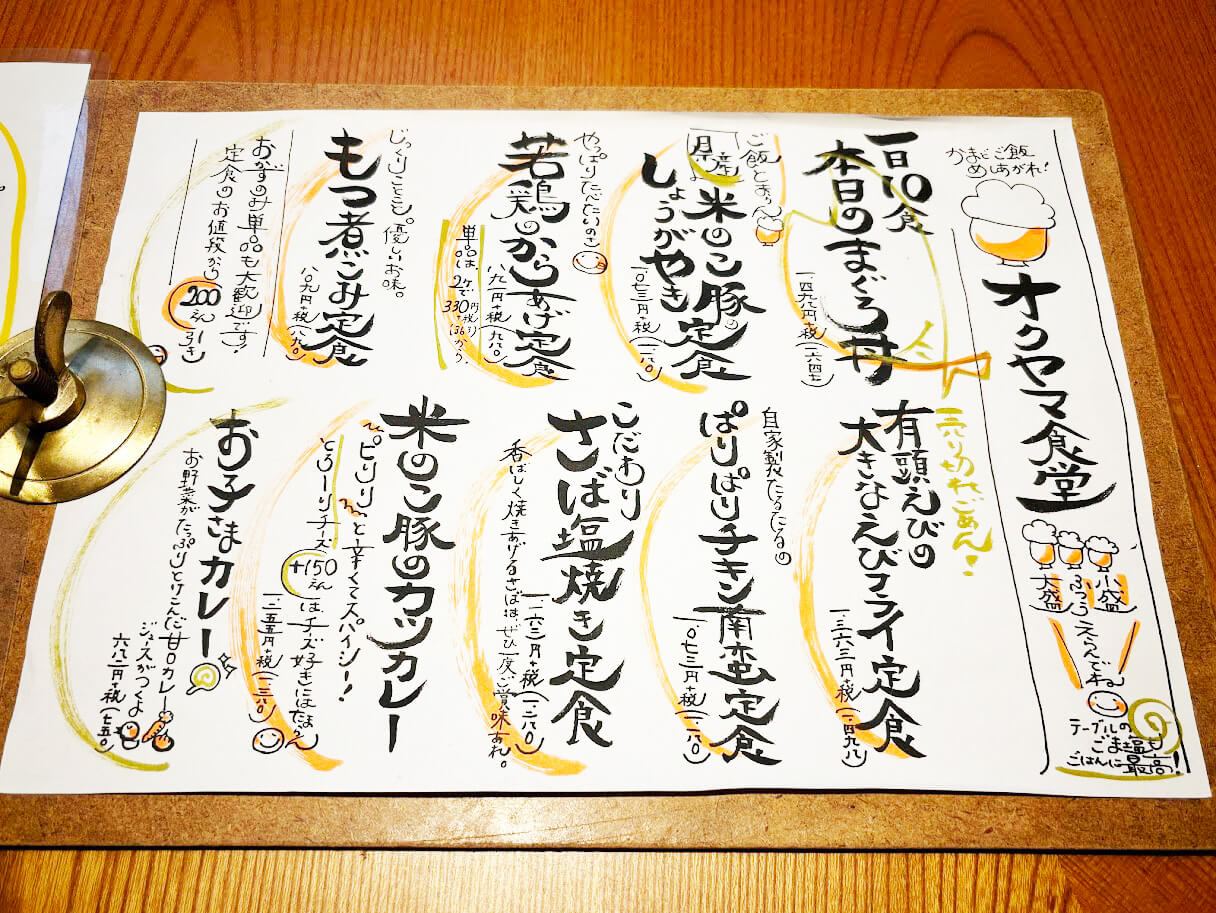 かまどご飯
めしあがれ!
オクヤマ食堂
小盛
ふつう
大盛
えらんでね
テーブルの
ごま塩も
ごはんに最高!
一日10食
本日のまぐろ丼
一四九七円+税(一六四七)
売り切れごめん!
ご飯とあうん
県産
米のこ豚の
しょうがやき定食
一〇七三円+税(一一八〇)
やっぱりたべたいのさ
若鶏のからあげ定食
八九一円+税(九八〇)
単品は、2ケで330円
じっくりことこと。優しいお味。
もつ煮こみ定食
八〇九円+税(八九〇)
おかずのみ単品も大歓迎です!
定食のお値段から200えん引き
有頭えびの
大きなえびフライ定食
一、三六三円+税(一、四九八)
自家製たるたるの
ぱりぱりチキン南蛮定食
一、〇七三円+税(一、一八〇)
こだわり
さば塩焼き定食
一一六三円+税(一、二八〇)
香ばしく焼きあげるさばは、ぜひ一度ご賞味あれ。
米のこ豚のカツカレー
ピリリッと辛くてスパイシー!
とろーりチーズ+150えんは、チーズ好きにはたまらん
一、二五五円+税(一、三八〇)
お子さまカレー
お野菜がたっぷりとけこんだ甘口カレー
ジュースがつくよ
六八二円+税(七五〇)